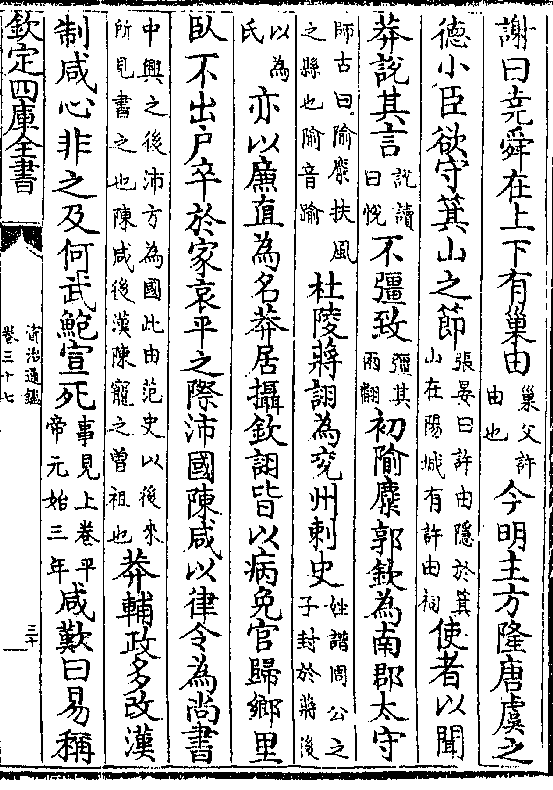 謝曰堯舜在上下有巢由巢父許由也今明主方隆唐虞之
德小臣欲守箕山之節張晏曰許由隱於箕山在陽城有許由祠使者以聞
莽說其言說讀曰悅不彊致彊其兩翻初隃麋郭欽為南郡太守
師古曰隃麋扶風之縣也隃音踰杜陵蔣詡為兗州刺史姓譜周公之子封於蔣後
以為氏亦以廉直為名莽居攝欽詡皆以病免官歸鄉里
臥不出戶卒於家哀平之際沛國陳咸以律令為尚書
中興之後沛方為國此由范史以後來所見書之也陳咸後漢陳寵之曾祖也莽輔政多改漢
制咸心非之及何武鮑宣死事見上卷平帝元始三年咸歎曰易稱
欽定四庫全書
資治通鑑
卷三十七
三十